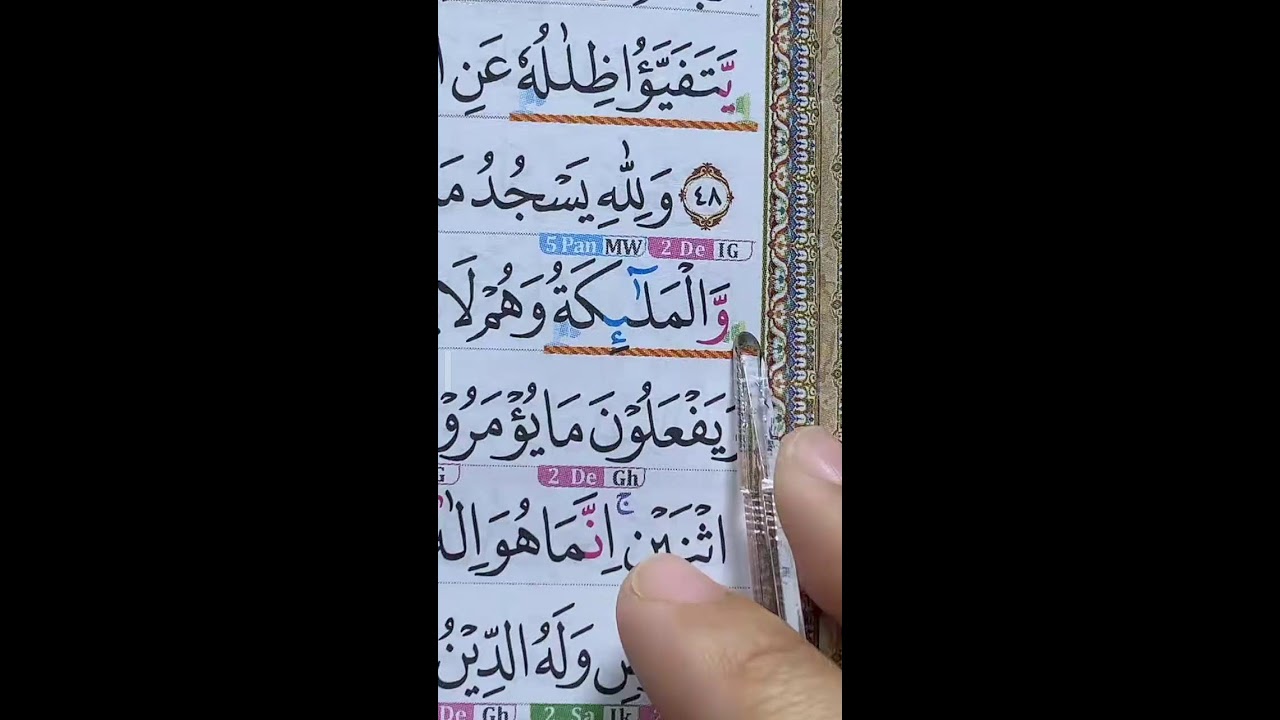 يَّتَفَيَّؤُا ظِلٰلُهٗ عَنِ
٤٨ وَلِلّٰهِ يَسْجُدُ مَ
5 Pan MW 2 De IG
وَّالْمَلٰۤىِٕكَةُ وَهُمْ لَا
يَفْعَلُوْنَ مَا يُؤْمَرُوْ
G 2 De Gh
اثْنَيْنِۚ اِنَّمَا هُوَ اِلٰهٌ
وَلَهُ الدِّيْنُ
De Gh 2 Sa Ik